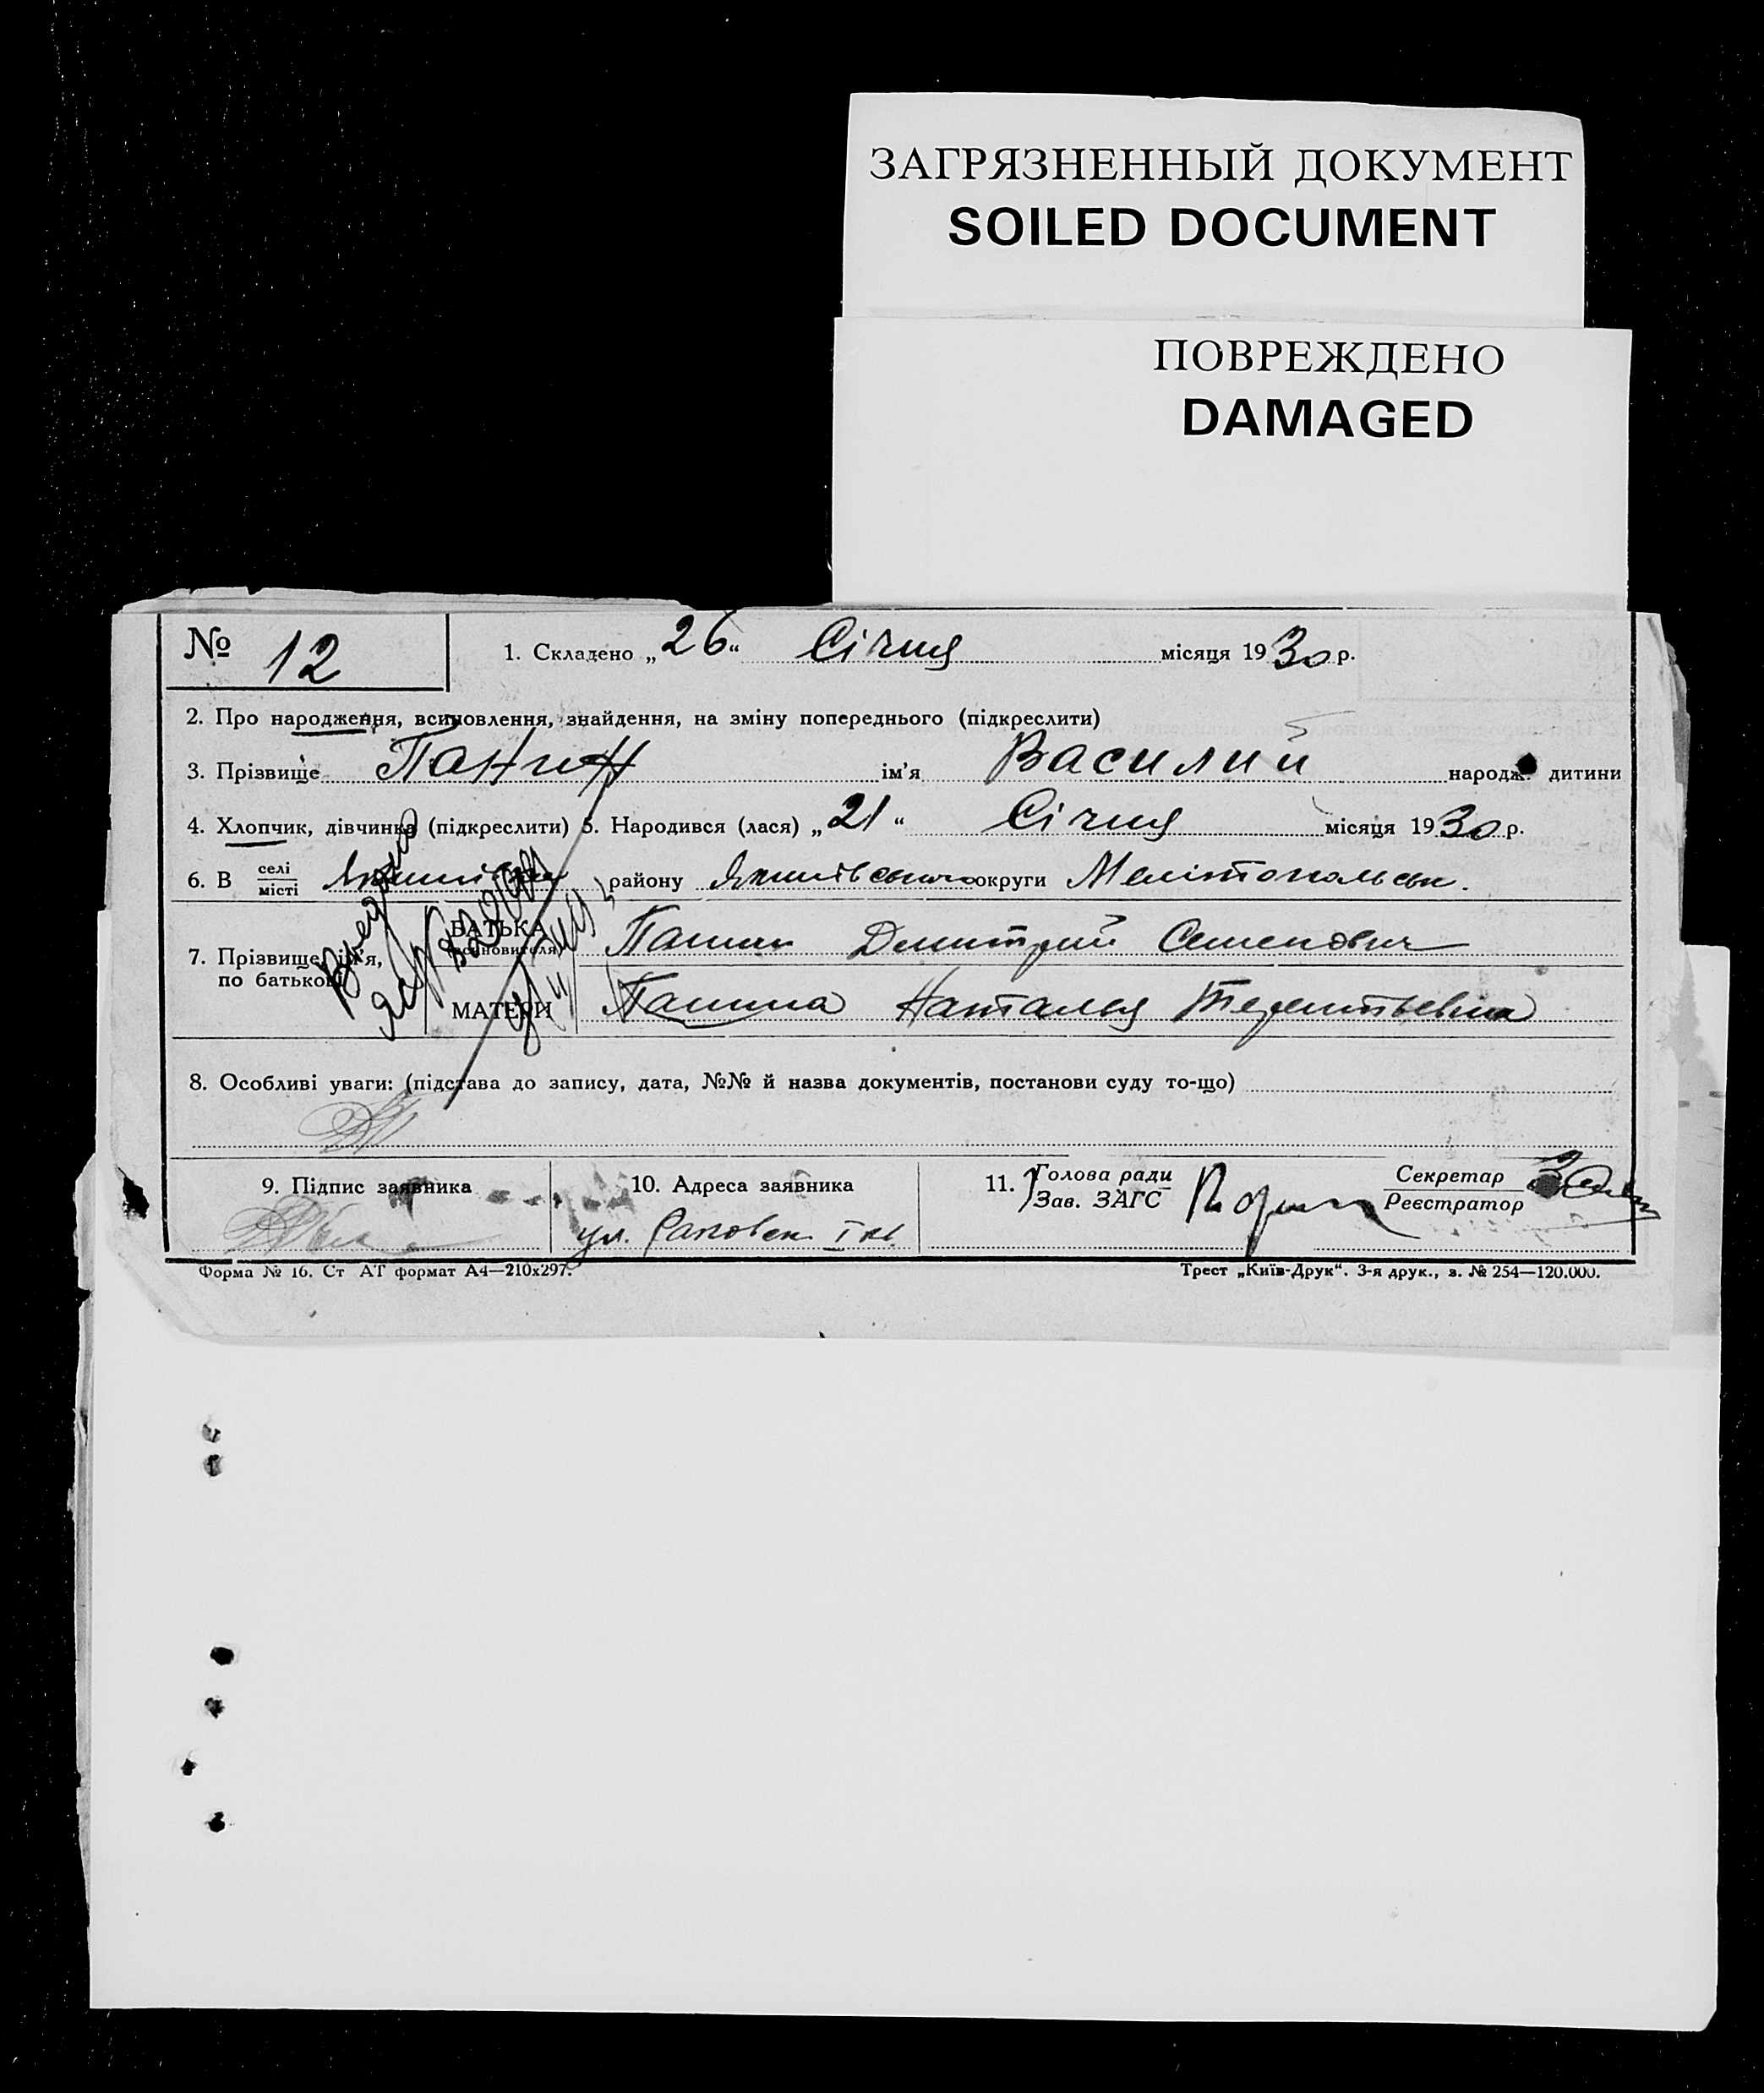 ЗАГРЯЗНЕННЫЙ ДОКУМЕНТ
SOILED DOCUMENT
ПОВРЕЖДЕНО
DAMAGED
№ 12
1. Складено „26“ Січня місяця 1930 р.
2. Про народження, всиновлення, знайдення, на зміну попереднього (підкреслити)
3. Прізвище Панин ім'я Василий народж. дитини
4. Хлопчик, дівчинка (підкреслити) 5. Народився (лася) „21“ Січня місяця 1930 р.
6. В селі/місті району округи Мелітопольськ.
7. Прізвище, ім'я, по батькові
БАТЬКА Панин Дмитрий Семенович
МАТЕРИ Панина Наталья Терентьевна
8. Особливі уваги: (підстава до запису, дата, №№ й назва документів, постанови суду то-що)
9. Підпис заявника
10. Адреса заявника
11. Голова ради
Зав. ЗАГС
Секретар
Реєстратор
ул.
Форма № 16. Ст АТ формат А4—210х297.
Трест „Київ-Друк“. 3-я друк., з. № 254—120.000.